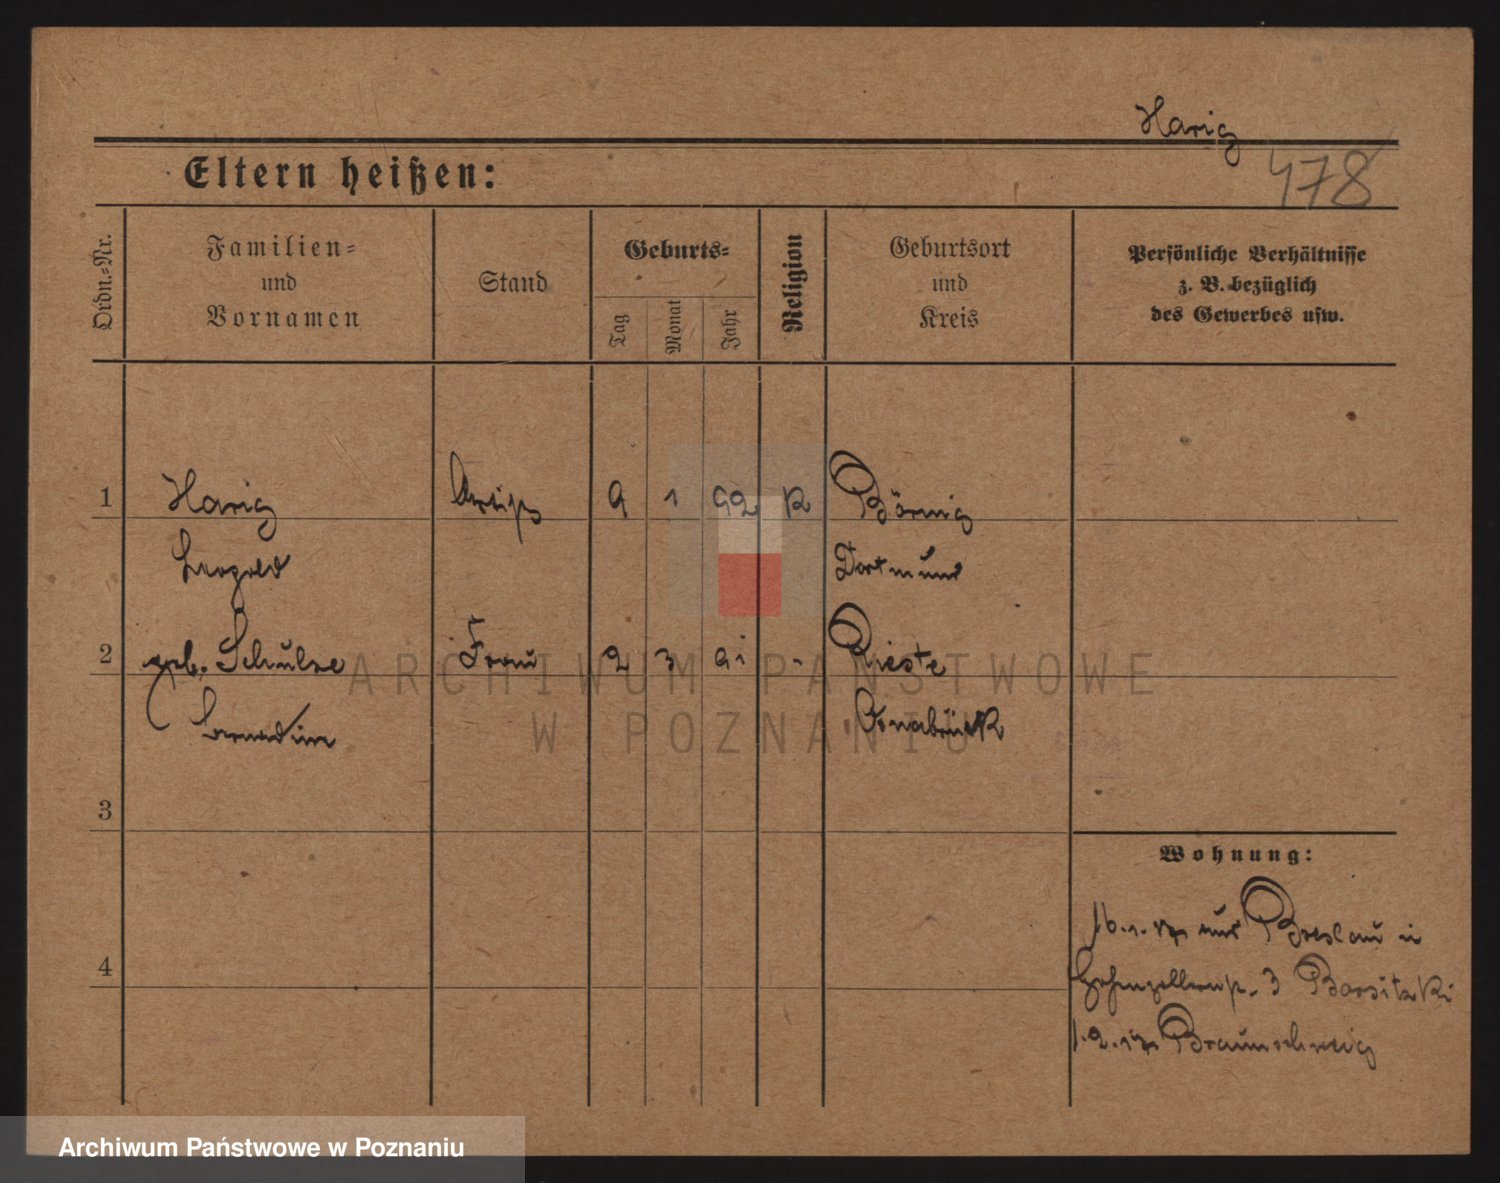 Harig
478
Eltern heißen:
Ordn.-Nr.
Familien-
und
Vornamen
Stand
Geburts-
Tag
Monat
Jahr
Religion
Geburtsort
und
Kreis
Persönliche Verhältnisse
z. B. bezüglich
des Gewerbes usw.
1 Harig 9 1 92 K Börnig
Leopold Dortmund
2 geb. Schulze Frau 2 3 91 - Rieste
Bernadine Osnabrück
3
4
Wohnung:
16.1.17 aus Breslau in
Hohenzollernstr. 3
1.2.17 Braunschweig
ARCHIWUM PAŃSTWOWE
W POZNANIU
Archiwum Państwowe w Poznaniu